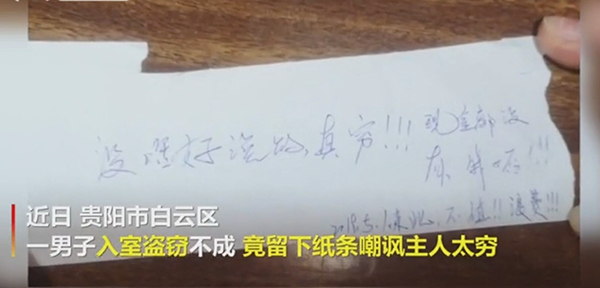 没啥好说的，真穷!!! 现金都没
有
!!!
不值!! 浪费!!!
近日 贵阳市白云区
一男子入室盗窃不成 竟留下纸条嘲讽主人太穷